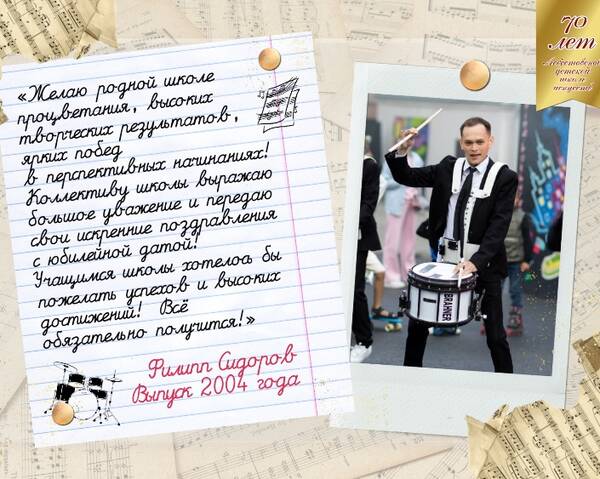 «Желаю родной школе
процветания, высоких
творческих результатов,
ярких побед
в перспективных начинаниях!
Коллективу школы выражаю
большое уважение и передаю
свои искренние поздравления
с юбилейной датой!
Учащимся школы хотелось бы
пожелать успехов и высоких
достижений! Всё
обязательно получится!»
Филипп Сидоров
Выпуск 2004 года
70
лет
детской
школе
искусств
BRAHNER